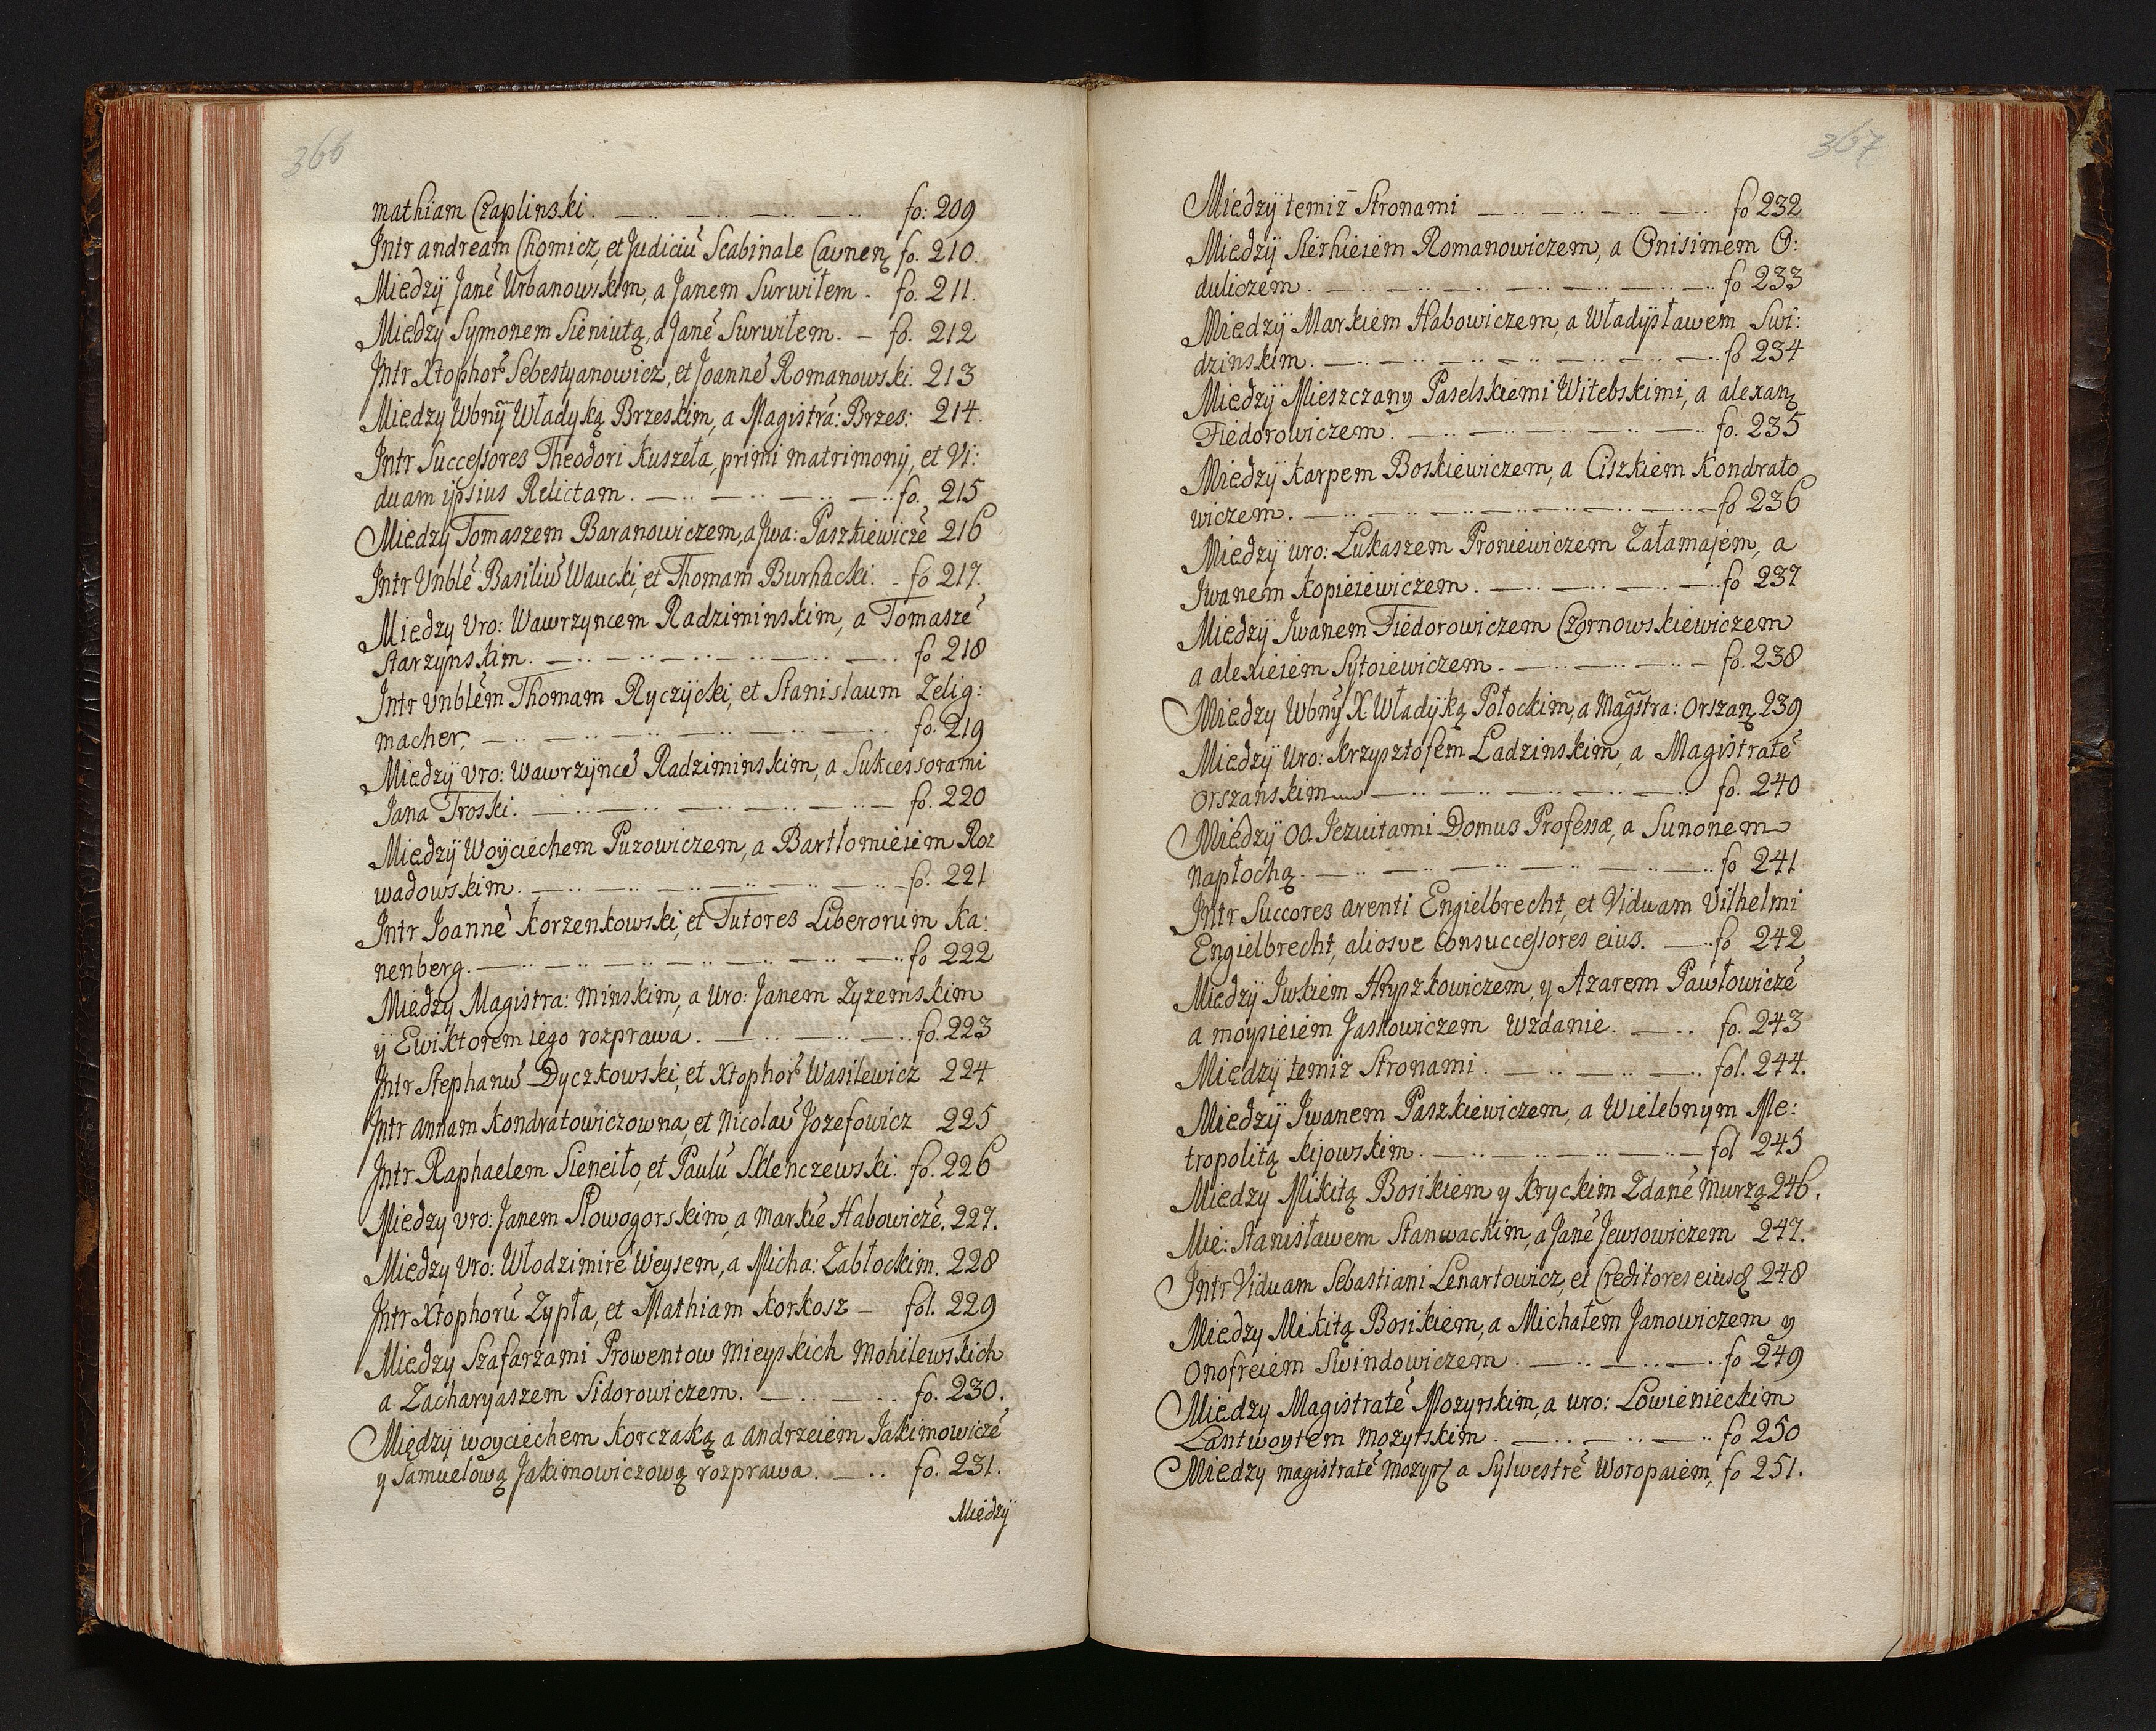 366
mathiam Czaplinski. fo: 209
Intr andream Chomicz, et Judiciu Scabinale Caunen fo. 210.
Miedzÿ Janē Urbanowskim, a Janem Surwiłem. fo. 211.
Miedzy Symonem Sieniutą, a Janē Surwiłem. fo. 212
Intr Xtophorū Sebestyanowicz, et Joannē Romanowski. 213
Miedzy Wbnỹ Władyką Brzeskim, a Magistra: Brzes: 214.
Intr Successores Theodori Kuszela, primi matrimonij, et Vi:
duam ipsius Relictam. fo. 215
Miedzy Tomaszem Baranowiczem, a Jwa: Paszkiewiczē 216
Intr Vnblē Basiliū Waucki, et Thomam Burhacki. fo 217.
Miedzy Vro: Wawrzyncem Radziminskim, a Tomaszē
Starzynskim. fo 218
Intr Vnblem Thomam Ryczÿcki, et Stanislaum Zelig:
macher, fo. 219
Miedzÿ Vro: Wawrzÿncē Radziminskim, a Sukcessorami
Jana Troski. fo. 220
Miedzÿ Woÿciechem Puzowiczem, a Bartłomieiem Roz
wadowskim. fo. 221
Intr Joannē Korzenkowski, et Tutores Liberorum Ka:
nenberg. fo 222
Miedzy Magistra: Minskim, a Uro: Janem Zyzemskim
y Ewiktorem iego rozprawa. fo. 223
Intr Stephanū Dyczkowski, et Xtophorū Wasilewicz 224
Intr Annam Kondratowiczowna, et Nicolaū Jozefowicz 225
Intr Raphaelem Sieneiło, et Paulū Sklenczewski. fo. 226
Miedzy Vro: Janem Słowogorskim, a Markiē Habowiczē. 227.
Miedzy Vro: Włodzimirē Weysem, a Micha: Zabłockim. 228
Intr Xtophorū Zypła, et Mathiam Korkosz fol. 229
Miedzy Szafarzami Prowentow Mieyskich Mohilewskich
a Zacharyaszem Sidorowiczem. fo. 230.
Międzÿ woyciechem Korczaką a andrzeiem Jakimowiczē
y Samuelową Jakimowiczową rozprawa. fo. 231.
Miedzÿ
367
Miedzÿ temiz Stronami fo 232
Miedzÿ Sierhieiem Romanowiczem, a Onisimem O:
duliczem. fo 233
Miedzÿ Markiem Habowiczem, a Władysławem Swi:
dzinskim. fo 234
Miedzÿ Mieszczany Paselskiemi Witebskimi, a alexan
Fiedorowiczem. fo. 235
Miedzÿ Karpem Boskiewiczem, a Ciszkiem Kondrato
wiczem. fo 236
Miedzÿ uro: Lukaszem Proniewiczem Załamajem, a
Jwanem Kopieiewiczem. fo 237
Miedzÿ Jwanem Fiedorowiczem Czornowskiewiczem
a alexieiem Sytoiewiczem. fo. 238
Miedzy Wbnỹ X Władÿką Połockim, a Magstra: Orszan 239
Miedzÿ Uro: Krzysztofem Ladzinskim, a Magistratē
Orszanskim fo. 240
Miedzÿ OO Jezuitami Domus Professæ, a Sunonem
Napłochą. fo 241
Intr Succores arenti Engielbrecht, et Viduam Vilhelmi
Engielbrecht, aliosve Consuccessores eius. fo 242
Miedzÿ Jwkiem Hryszkowiczem, y Azarem Pawłowiczē
a moysieiem Jaskowiczem wzdanie. fo. 243
Miedzÿ temiz Stronami. fol. 244.
Miedzÿ Jwanem Paszkiewiczem, a Wielebnym Me:
tropolitą kijowskim. fol 245
Miedzy Mikitą Bosikiem y Kryckim Zdanē Murzą 246.
Mie: Stanisławem Stanwackim, a Janē Jewsowiczem 247.
Intr Viduam Sebastiani Lenartowicz, et Creditores eiusq 248
Miedzy Mikitą Bosikiem, a Michałem Janowiczem y
Onofreiem Swindowiczem. fo 249
Miedzy Magistratē Mozyrskim, a uro: Lowienieckim
Lantwoytem Mozyrskim. fo 250
Miedzy magistratē Mozyr a Sylwestrē Woropaiem, fo 251.